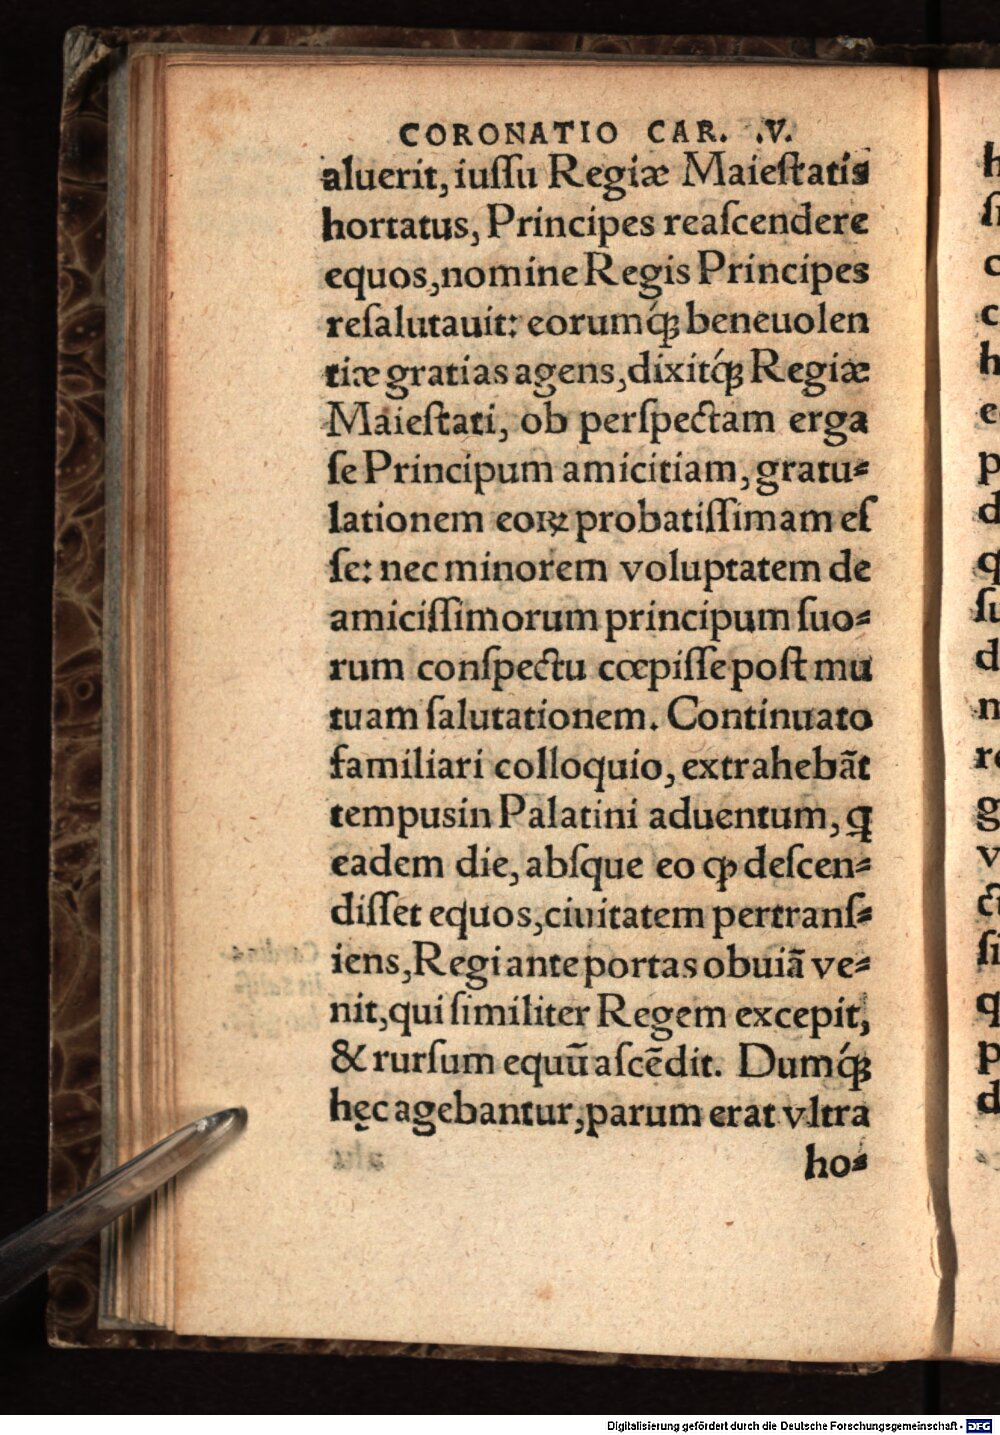 CORONATIO CAR. .V.
aluerit, iuſſu Regiæ Maieſtatis
hortatus, Principes reaſcendere
equos, nomine Regis Principes
reſalutauit: eorumq́ꝫ beneuolen
tiæ gratias agens, dixitq́ꝫ Regiæ
Maieſtati, ob perſpectam erga
ſe Principum amicitiam, gratu⸗
lationem eoꝝ probatiſſimam eſ
ſe: nec minorem voluptatem de
amiciſſimorum principum ſuo⸗
rum conſpectu cœpiſſe poſt mu
tuam ſalutationem. Continuato
familiari colloquio, extrahebãt
tempus in Palatini aduentum, ꝗ
eadem die, abſque eo ꝙ deſcen⸗
diſſet equos, ciuitatem pertranſ⸗
iens, Regi ante portas obuiã ve⸗
nit, qui ſimiliter Regem excepit,
& rurſum equũ aſcẽdit. Dumq́ꝫ
hęc agebantur, parum erat vltra
ho⸗
h
ſi
c
c
h
e
p
d
q
ſu
d
n
re
g
v
ct
ſi
q
p
d
Digitalisierung gefördert durch die Deutsche Forschungsgemeinschaft - DFG